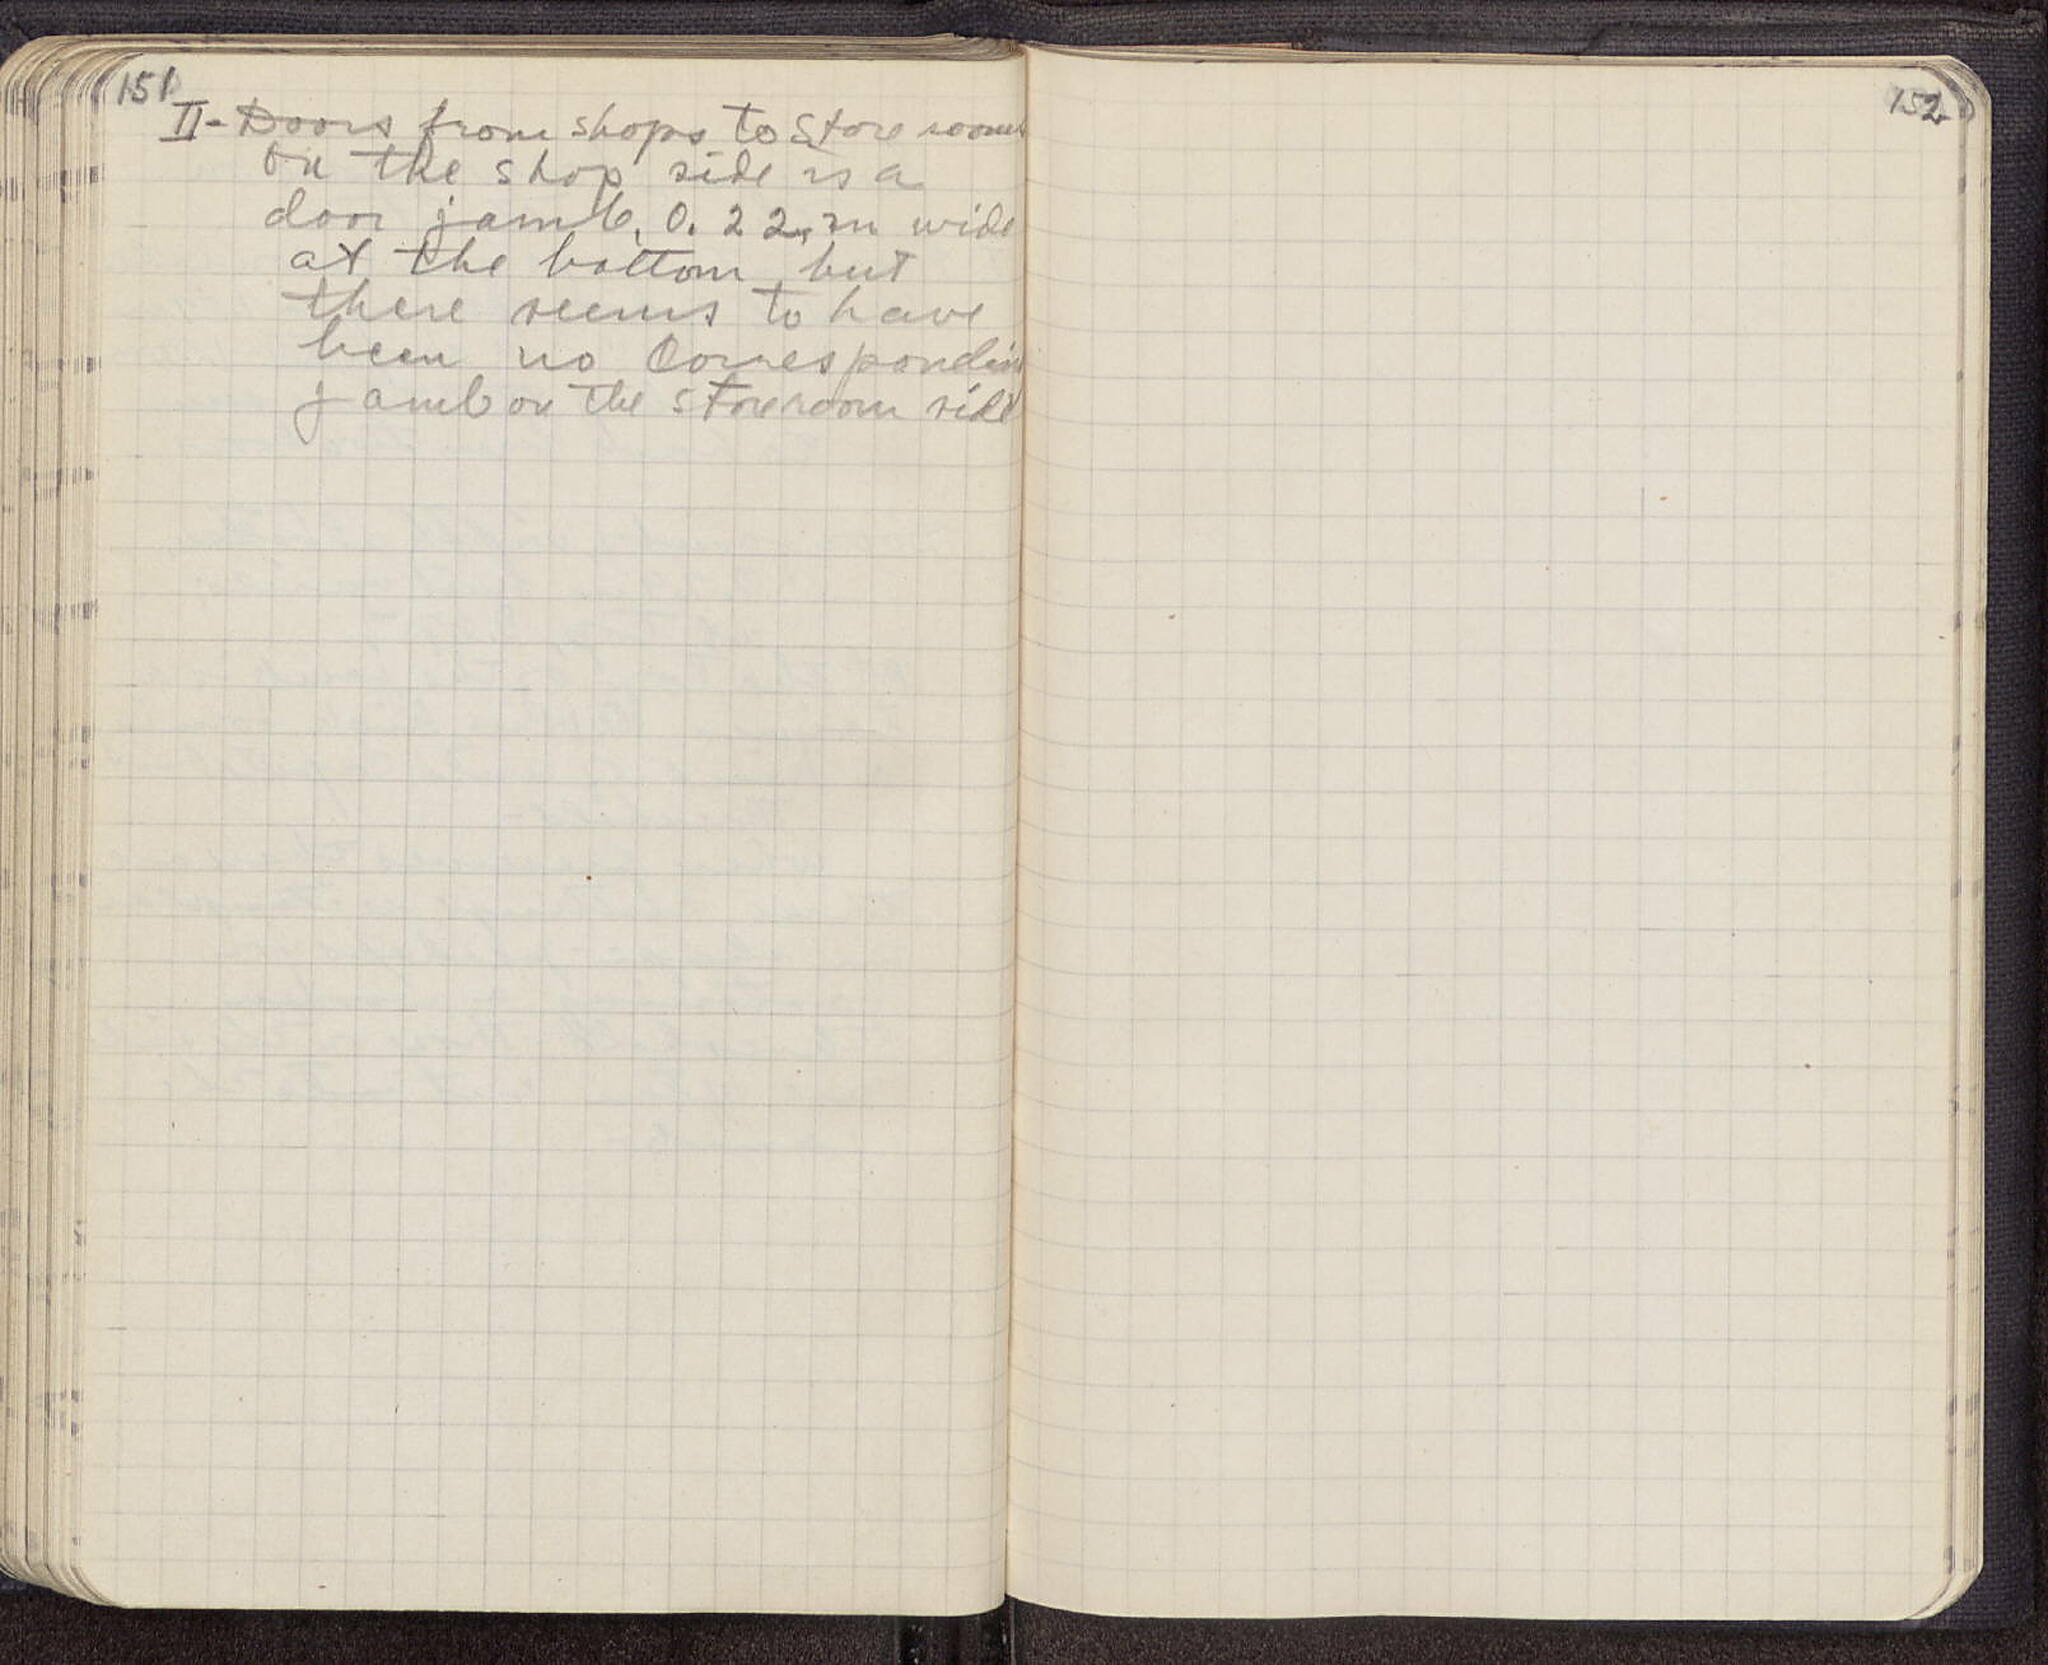 151
II - Doors from shops to store rooms
on the shop side is a
door jamb, 0.22 m wide
at the bottom, but
there seems to have
been no correspondin
jamb on the storeroom side
152